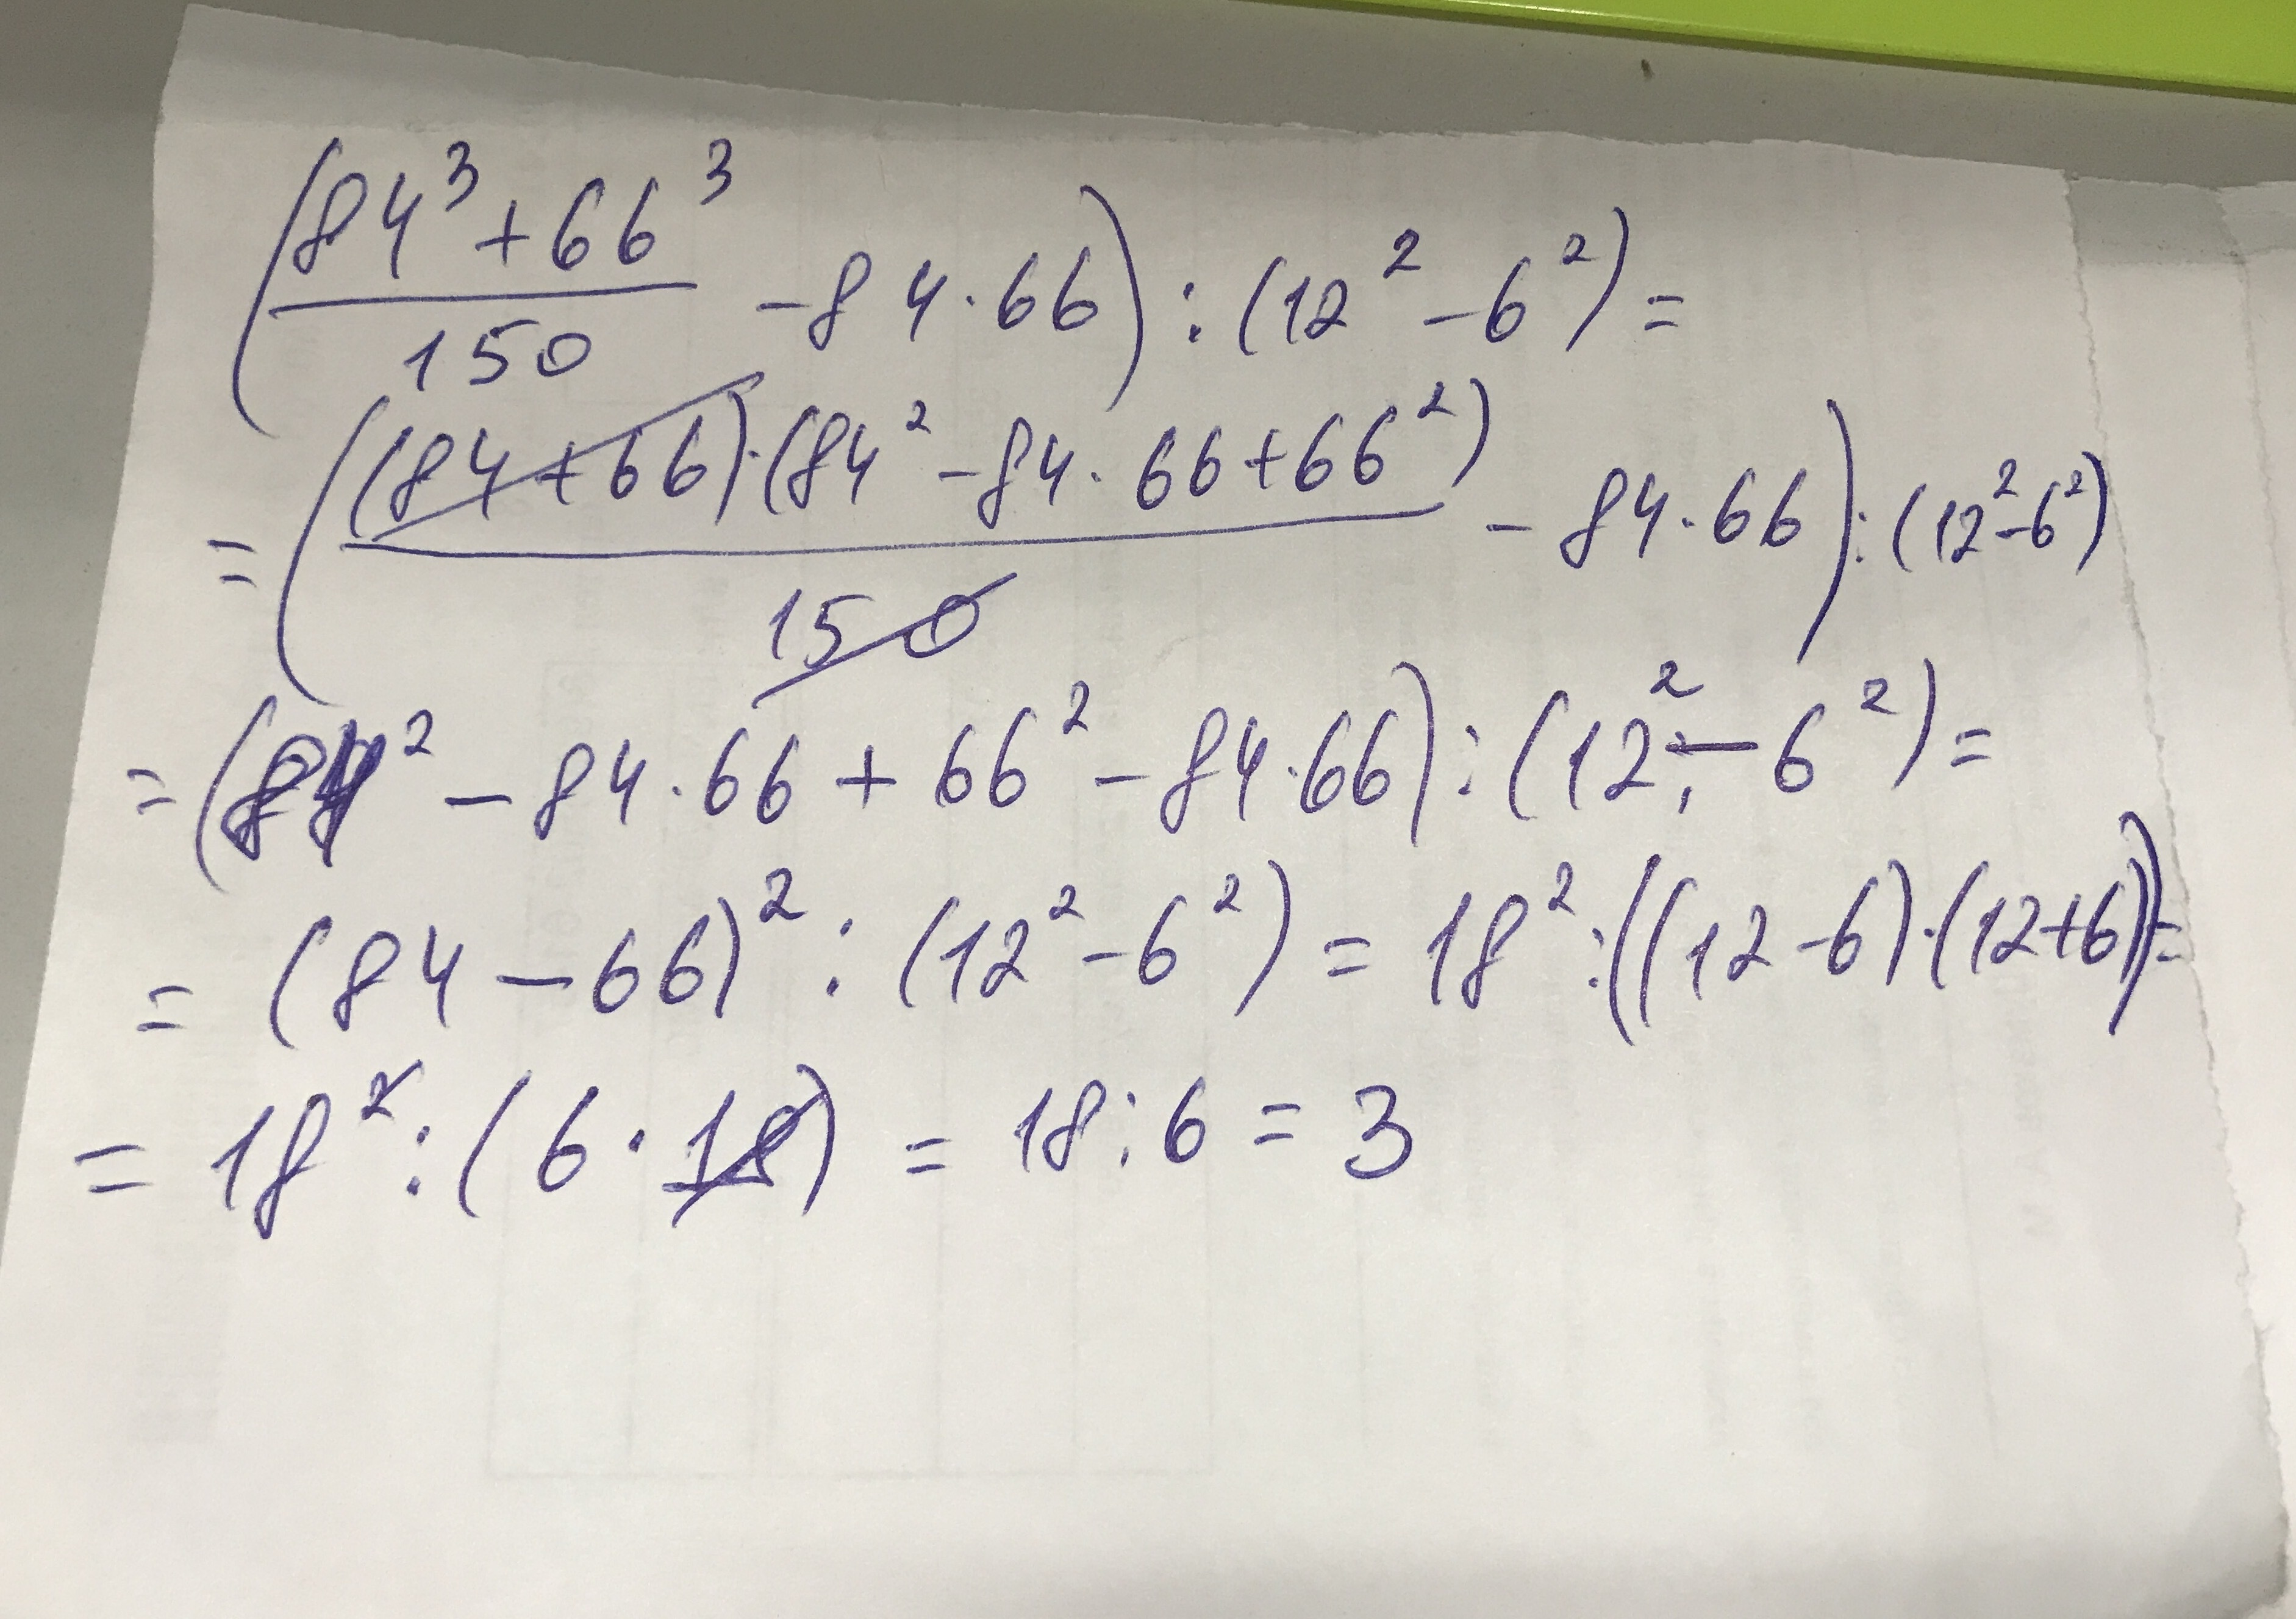 (84³+66³/150 - 84·66) : (12² - 6²) =
= ((84+66)·(84² - 84·66+66²)/150 - 84·66) : (12²-6²)
= (84² - 84·66 + 66² - 84·66) : (12² - 6²) =
= (84 - 66)² : (12² - 6²) = 18² : ((12-6)·(12+6)) =
= 18² : (6·18) = 18 : 6 = 3